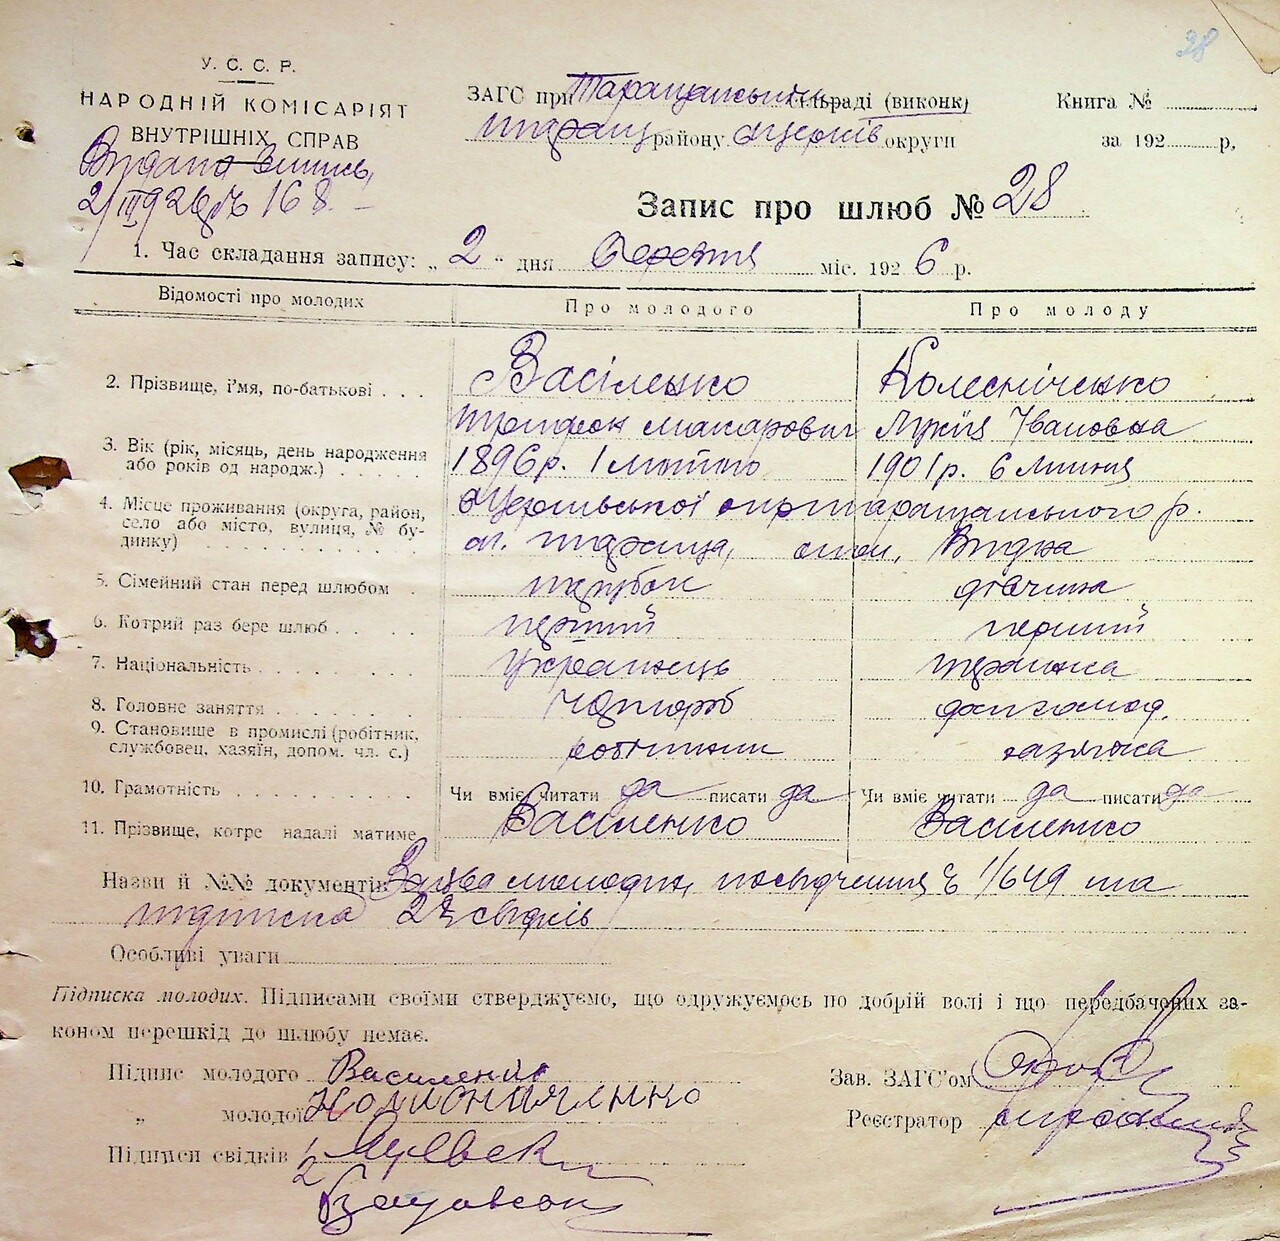 28
У. С. С. Р.
НАРОДНІЙ КОМІСАРІЯТ
ВНУТРІШНІХ СПРАВ
Видано випись
2/III 926 № 168
ЗАГС при Таращанськім сільраді (виконк)
Таращ району Б Церків округи
Книга №
за 192 р,
Запис про шлюб № 28
1. Час складання запису: „ 2 " дня Березня міс. 192 6 р.
Відомості про молодих
Про молодого
Про молоду
2. Прізвище, і'мя, по-батькові . . .
Васіленко
Колесніченко
Трифон Макарович
Лукія Івановна
3. Вік (рік, місяць, день народження
або років од народж.) . . .
1896 р. 1 лютого
1901 р. 6 липня
4. Місце проживання (округа, район,
село або місто, вулиця, № бу-
динку)
БЦерківської окр Таращанського р.
м. Тараща,
5. Сімейний стан перед шлюбом .
парубок
дівчина
6. Котрий раз бере шлюб . . . .
перший
перший
7. Національність
Українець
українка
8. Головне заняття
Чорнороб
9. Становище в промислі (робітник,
службовец, хазяїн, допом. чл. с.)
робітник
хазяйка
10. Грамотність
Чи вміє читати да писати да
Чи вміє читати да писати да
11. Прізвище, котре надалі матиме
Василенко
Василенко
Назви й №№ документів Заява молодих, посвідчення № 1/649 та
підписка 2х свідків
Особливі уваги
Підписка молодих. Підписами своїми стверджуємо, що одружуємось по добрій волі і що передбачених за-
коном перешкід до шлюбу немає.
Підпис молодого Василенко
„ молодої
Зав. ЗАГС'ом
Реєстратор
Підписи свідків 1
2